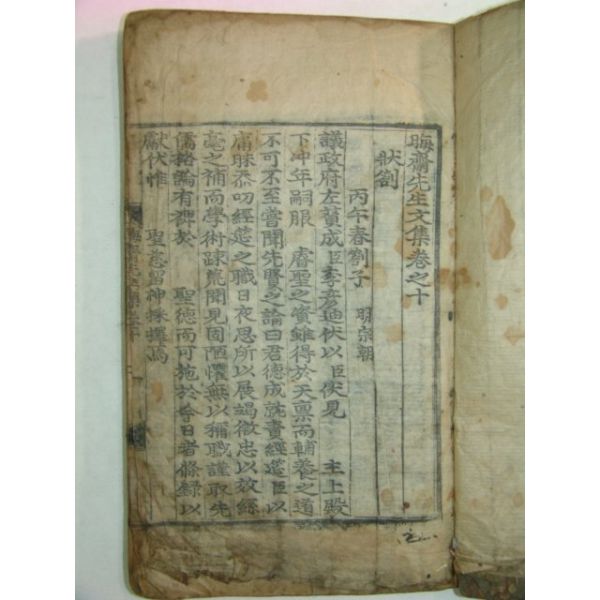 晦齋先生文集卷之十
狀劄
丙午春劄子 明宗朝
議政府左贊成臣李彦迪伏以臣伏見 主上殿
下冲年嗣服 睿聖之資雖得於天禀而輔養之道
不可不至嘗聞先賢之論曰君德成就責經筵臣以
庸昧忝叨經筵之職日夜思所以展竭微忠以效絲
毫之補而學術踈荒聞見固陋懼無以稱職謹取先
儒格論有裨於 聖德而可施於今日者條錄以
獻伏惟 聖慈留神採擇焉